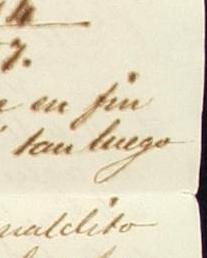 14
7.
en fin
tan luego
maldito